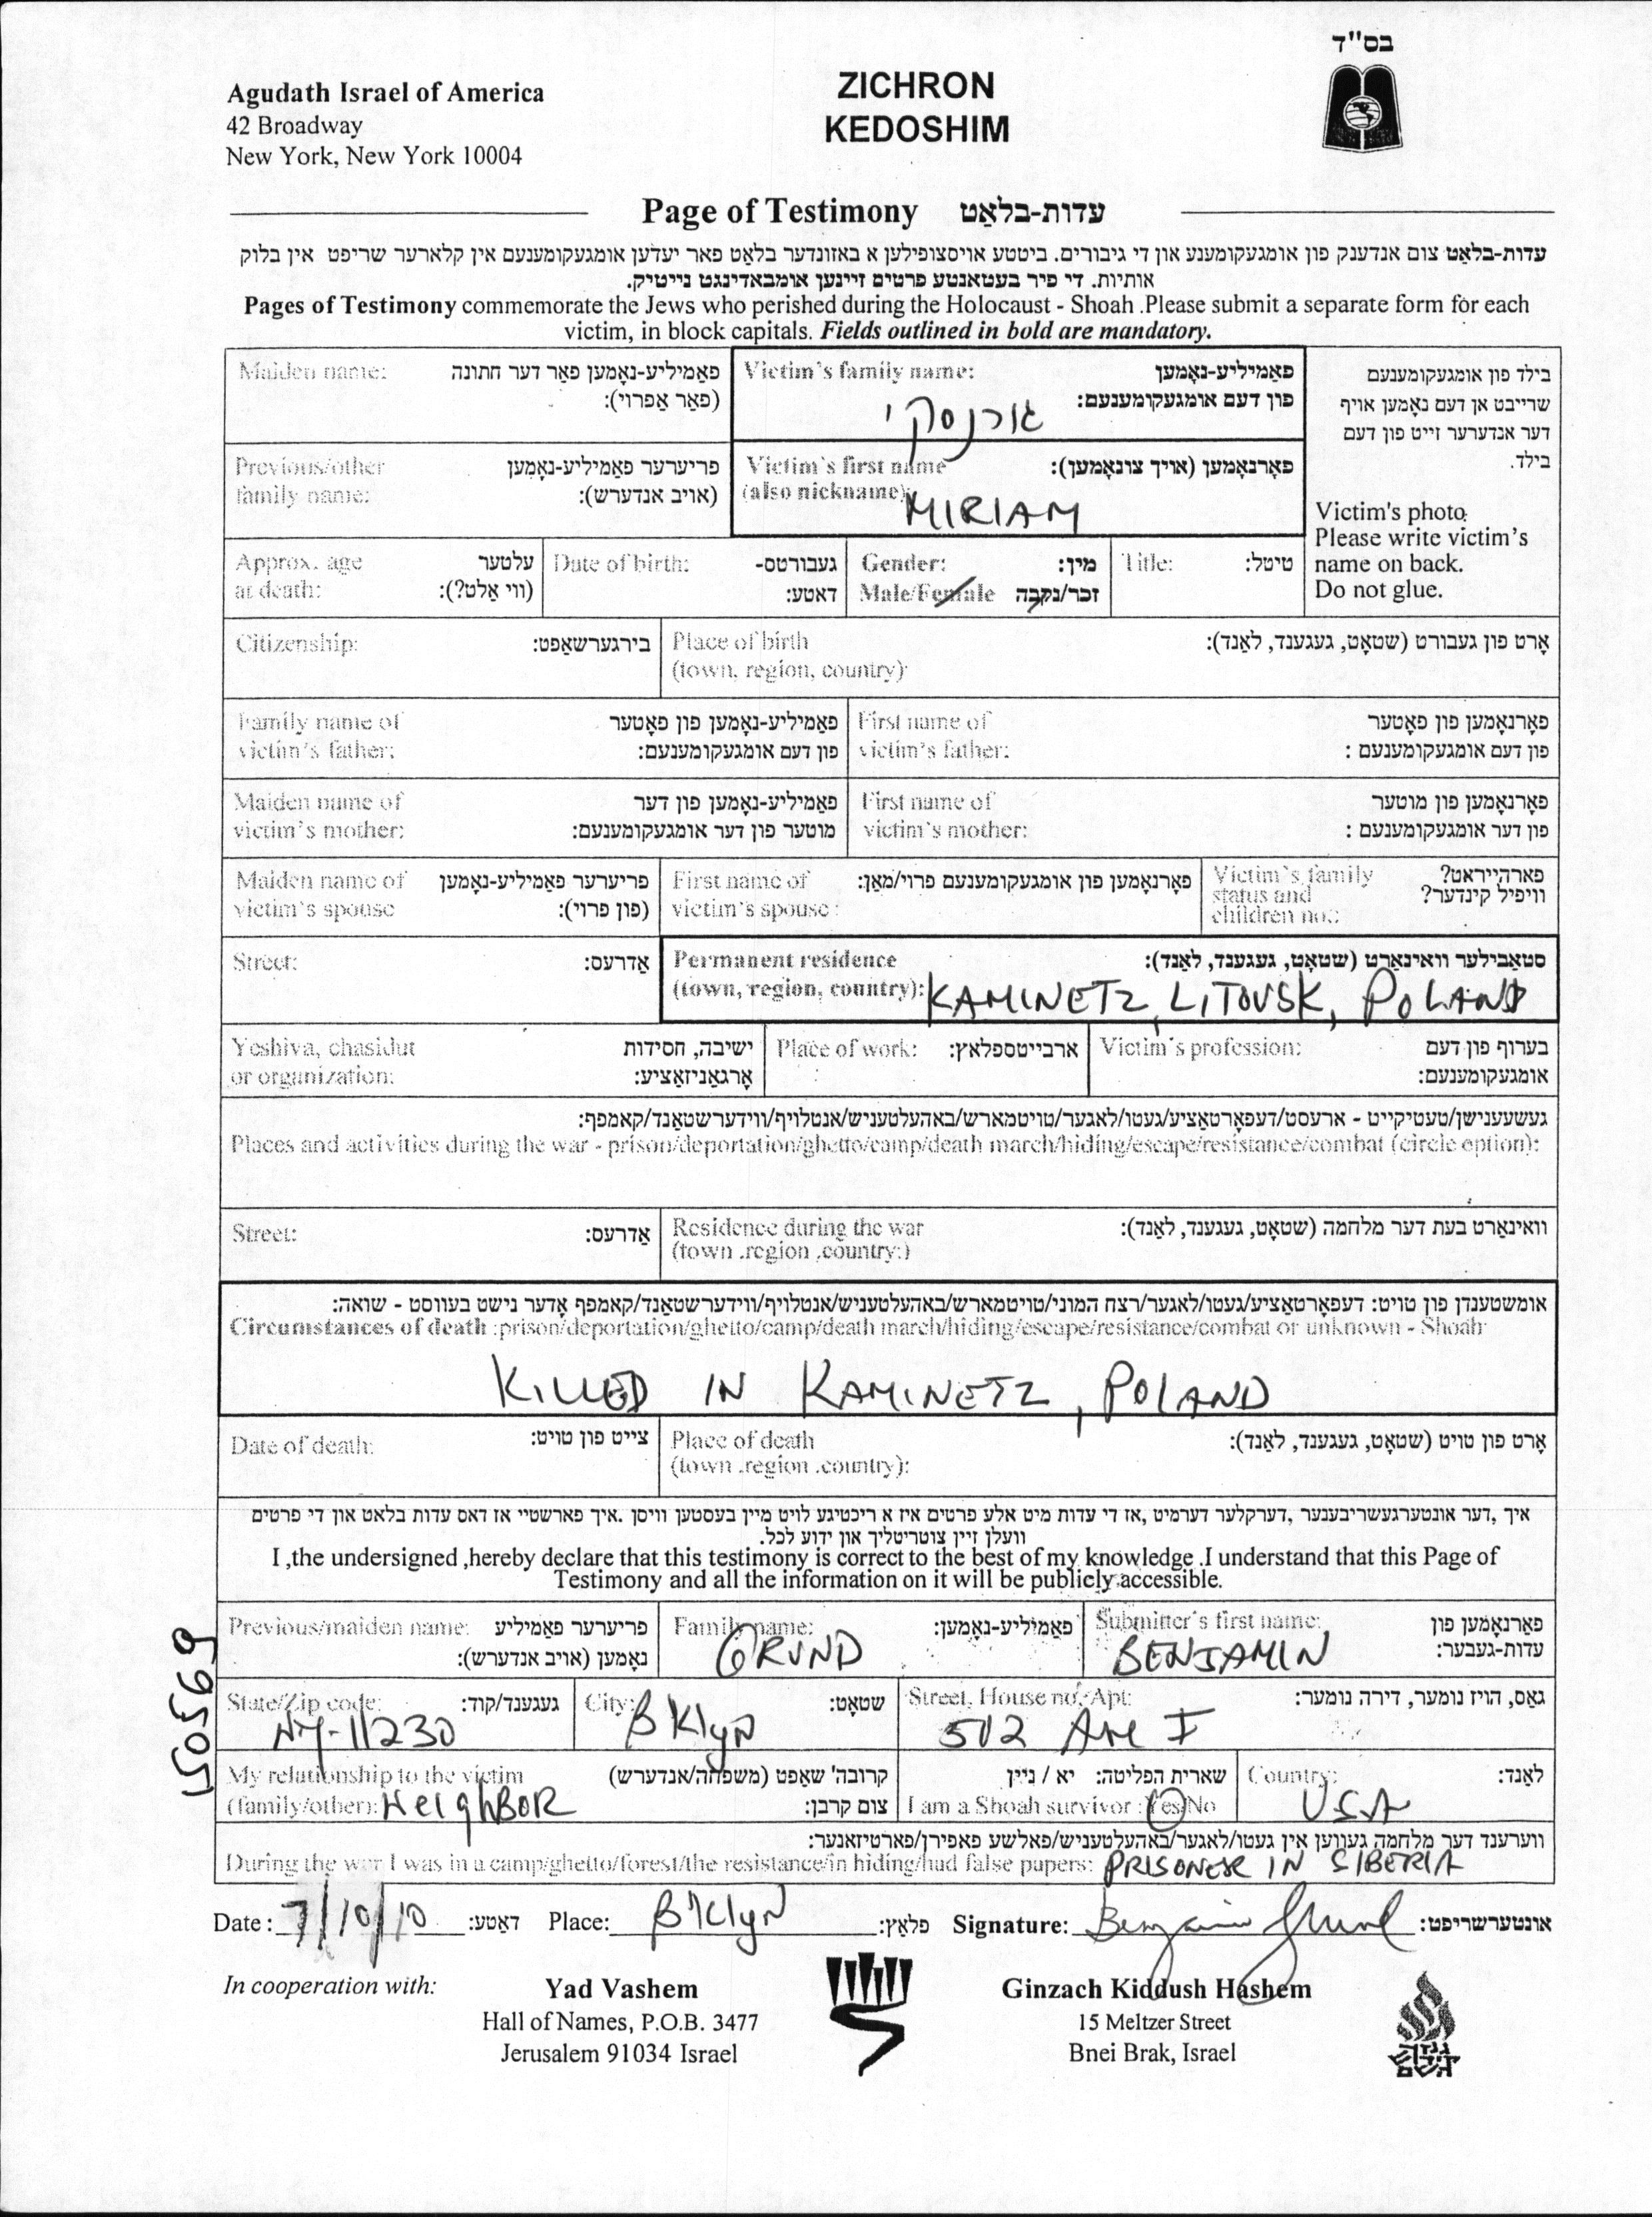 בס"ד
Agudath Israel of America
42 Broadway
New York, New York 10004
ZICHRON
KEDOSHIM
Page of Testimony עדות-בלאַט
עדות-בלאַט צום אנדענק פון אומגעקומענע און די גיבורים. ביטטע אויסצופילען א באזונדער בלאט פאר יעדען אומגעקומענעם אין קלארער שריפט אין בלוק
אותיות. די פיר בעטאנטע פרטים זיינען אומבאדינגט נייטיק.
Pages of Testimony commemorate the Jews who perished during the Holocaust - Shoah .Please submit a separate form for each
victim, in block capitals. Fields outlined in bold are mandatory.
Maiden name: פאַמיליע-נאָמען פאַר דער חתונה
(פאַר אַפרוי):
Victim's family name: פאַמיליע-נאָמען
פון דעם אומגעקומענעם:
גורנסקי
בילד פון אומגעקומענעם
שרייבט אן דעם נאָמען אויף
דער אנדערער זייט פון דעם
בילד.
Victim's photo
Please write victim's
name on back.
Do not glue.
Previous/other פריערער פאַמיליע-נאָמען
family name: (אויב אנדערש):
Victim's first name פאָרנאָמען (אויך צונאָמען):
(also nickname):
MIRIAM
Approx. age עלטער
at death: (ווי אַלט?):
Date of birth: געבורטס-
דאטע:
Gender: מין:
Male/Female זכר/נקבה
Title: טיטל:
Citizenship: בירגערשאַפט:
Place of birth אָרט פון געבורט (שטאָט, געגענד, לאַנד):
(town, region, country)
Family name of פאַמיליע-נאָמען פון פאָטער
victim's father: פון דעם אומגעקומענעם:
First name of פאָרנאָמען פון פאָטער
victim's father: פון דעם אומגעקומענעם :
Maiden name of פאַמיליע-נאָמען פון דער
victim's mother: מוטער פון דער אומגעקומענעם:
First name of פאָרנאָמען פון מוטער
victim's mother: פון דער אומגעקומענעם :
Maiden name of פריערער פאַמיליע-נאָמען
victim's spouse (פון פרוי):
First name of פאָרנאָמען פון אומגעקומענעם פרוי/מאַן:
victim's spouse :
Victim's family פארהייראט?
status and וויפיל קינדער?
children no.:
Street: אַדרעס:
Permanent residence סטאַבילער וואינאָרט (שטאָט, געגענד, לאַנד):
(town, region, country): KAMINETZ, LITOVSK, POLAND
Yeshiva, chasidut ישיבה, חסידות
or organization: אָרגאַניזאַציע:
Place of work: ארבייטספלאץ:
Victim's profession: בערוף פון דעם
אומגעקומענעם:
געשעענישן/טעטיקייט - ארעסט/דעפאָרטאַציע/געטו/לאגער/טויטמארש/באהעלטעניש/אנטלויף/ווידערשטאַנד/קאמפף:
Places and activities during the war - prison/deportation/ghetto/camp/death march/hiding/escape/resistance/combat (circle option):
Street: אַדרעס:
Residence during the war וואינאָרט בעת דער מלחמה (שטאָט, געגענד, לאַנד):
(town .region .country:)
אומשטענדן פון טויט: דעפאָרטאַציע/געטו/לאגער/רצח המוני/טויטמארש/באהעלטעניש/אנטלויף/ווידערשטאַנד/קאמפף אָדער נישט בעווסט - שואה:
Circumstances of death :prison/deportation/ghetto/camp/death march/hiding/escape/resistance/combat or unknown - Shoah
KILLED IN KAMINETZ, POLAND
Date of death: צייט פון טויט:
Place of death אָרט פון טויט (שטאָט, געגענד, לאַנד):
(town .region .country):
איך ,דער אונטערגעשריבענער ,דערקלער דערמיט ,אז די עדות מיט אלע פרטים איז א ריכטיגע לויט מיין בעסטען וויסן .איך פארשטיי אז דאס עדות בלאט און די פרטים
וועלן זיין צוטריטליך און ידוע לכל.
I ,the undersigned ,hereby declare that this testimony is correct to the best of my knowledge .I understand that this Page of
Testimony and all the information on it will be publicly accessible.
Previous/maiden name: פריערער פאַמיליע
נאָמען (אויב אנדערש):
Family name: פאַמיליע-נאָמען:
GRUND
Submitter's first name: פאָרנאָמען פון
עדות-געבער:
BENJAMIN
State/Zip code: געגענד/קוד:
NY-11230
City: שטאָט:
BKlyN
Street, House no, Apt: גאַס, הויז נומער, דירה נומער:
502 Ave I
My relationship to the victim קרובה' שאַפט (משפחה/אנדערש)
(family/other): NeighBOR צום קרבן:
שארית הפליטה: יא / ניין
I am a Shoah survivor : Yes/No
Country: לאַנד:
USA
ווערענד דער מלחמה געווען אין געטו/לאגער/באהעלטעניש/פאלשע פאפירן/פארטיזאנער:
During the war I was in a camp/ghetto/forest/the resistance/in hiding/had false papers: PRISONER IN SIBERIA
Date : 7/10/10 דאַטע: Place: BKlyN פלאַץ: Signature: Benjamin Grund אונטערשריפט:
In cooperation with:
Yad Vashem
Hall of Names, P.O.B. 3477
Jerusalem 91034 Israel
Ginzach Kiddush Hashem
15 Meltzer Street
Bnei Brak, Israel
150569